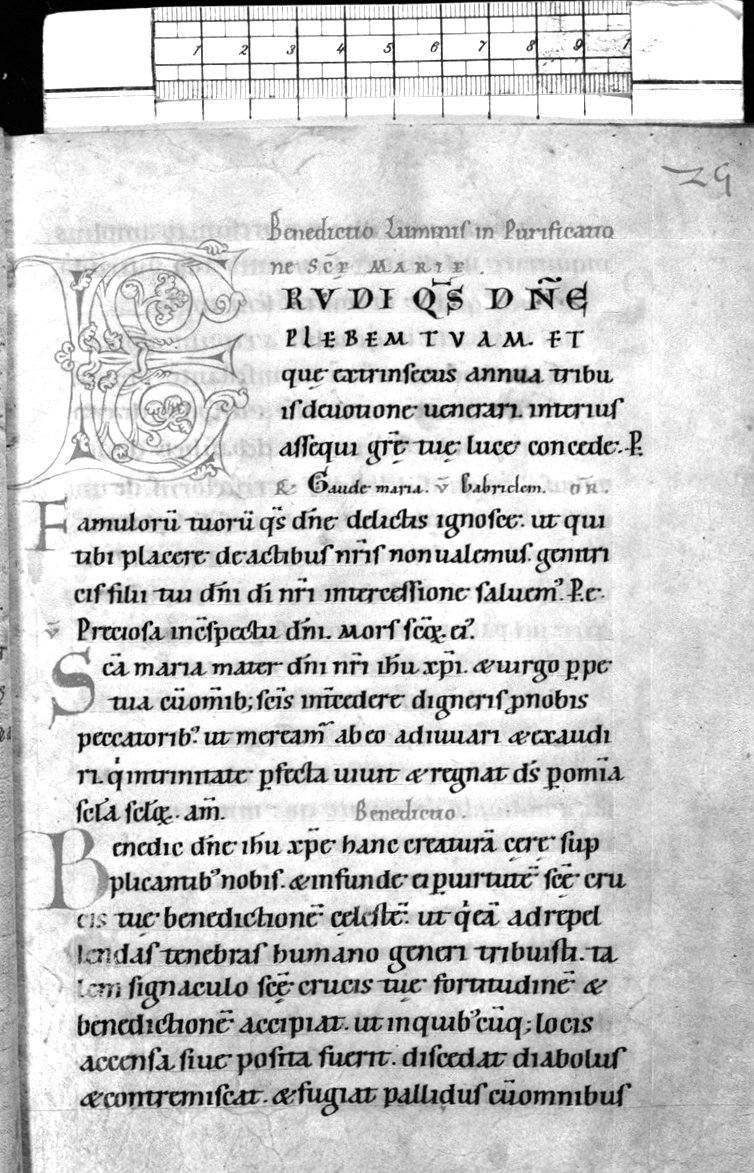 1 2 3 4 5 6 7 8 9 1
29
Benedictio Luminis in Purificatio
ne SCE MARIE.
ERVDI QS DNE
PLEBEM TVAM. ET
quę extrinsecus annua tribu
is deuotione uenerari. interius
assequi grę̄ tuę luce concede. P.
R Gaude maria. v̄ Gabrielem. OR.
Famulorū tuorū qs̄ dn̄e delictis ignosce. ut qui
tibi placere de actibus nr̄is non ualemus. genitri
cis filii tui dn̄i dī nr̄i intercessione saluem̄. P. e.
v̄ Preciosa in c̄spectu dn̄i. Mors sc̄ꝝ. ei᷒.
Sc̄a maria mater dn̄i nr̄i ihū xp̄i. & uirgo ꝑpe
tua cū om̄ib; sc̄is int̄cedere digneris ꝓ nobis
peccatorib᷒ ut meream̄ ab eo adiuuari & exaudi
ri. q̇ in trinitate ꝑfecta uiuit & regnat ds̄ ꝑ om̄ia
scl̄a scl̄ꝝ. am̄. Benedictio.
Benedic dn̄e ihū xp̄e hanc creaturā cęre sup
plicantib᷒ nobis. & infunde ei ꝑ uirtutē sc̄ę cru
cis tuę benedictionē celestē. ut q̇ eā ad repel
lendas tenebras humano generi tribuisti. ta
lem signaculo sc̄ę crucis tuę fortitudinē &
benedictionē accipiat. ut in quib᷒cūq; locis
accensa siue posita fuerit. discedat diabolus
& contremiscat. & fugiat pallidus cū omnibus